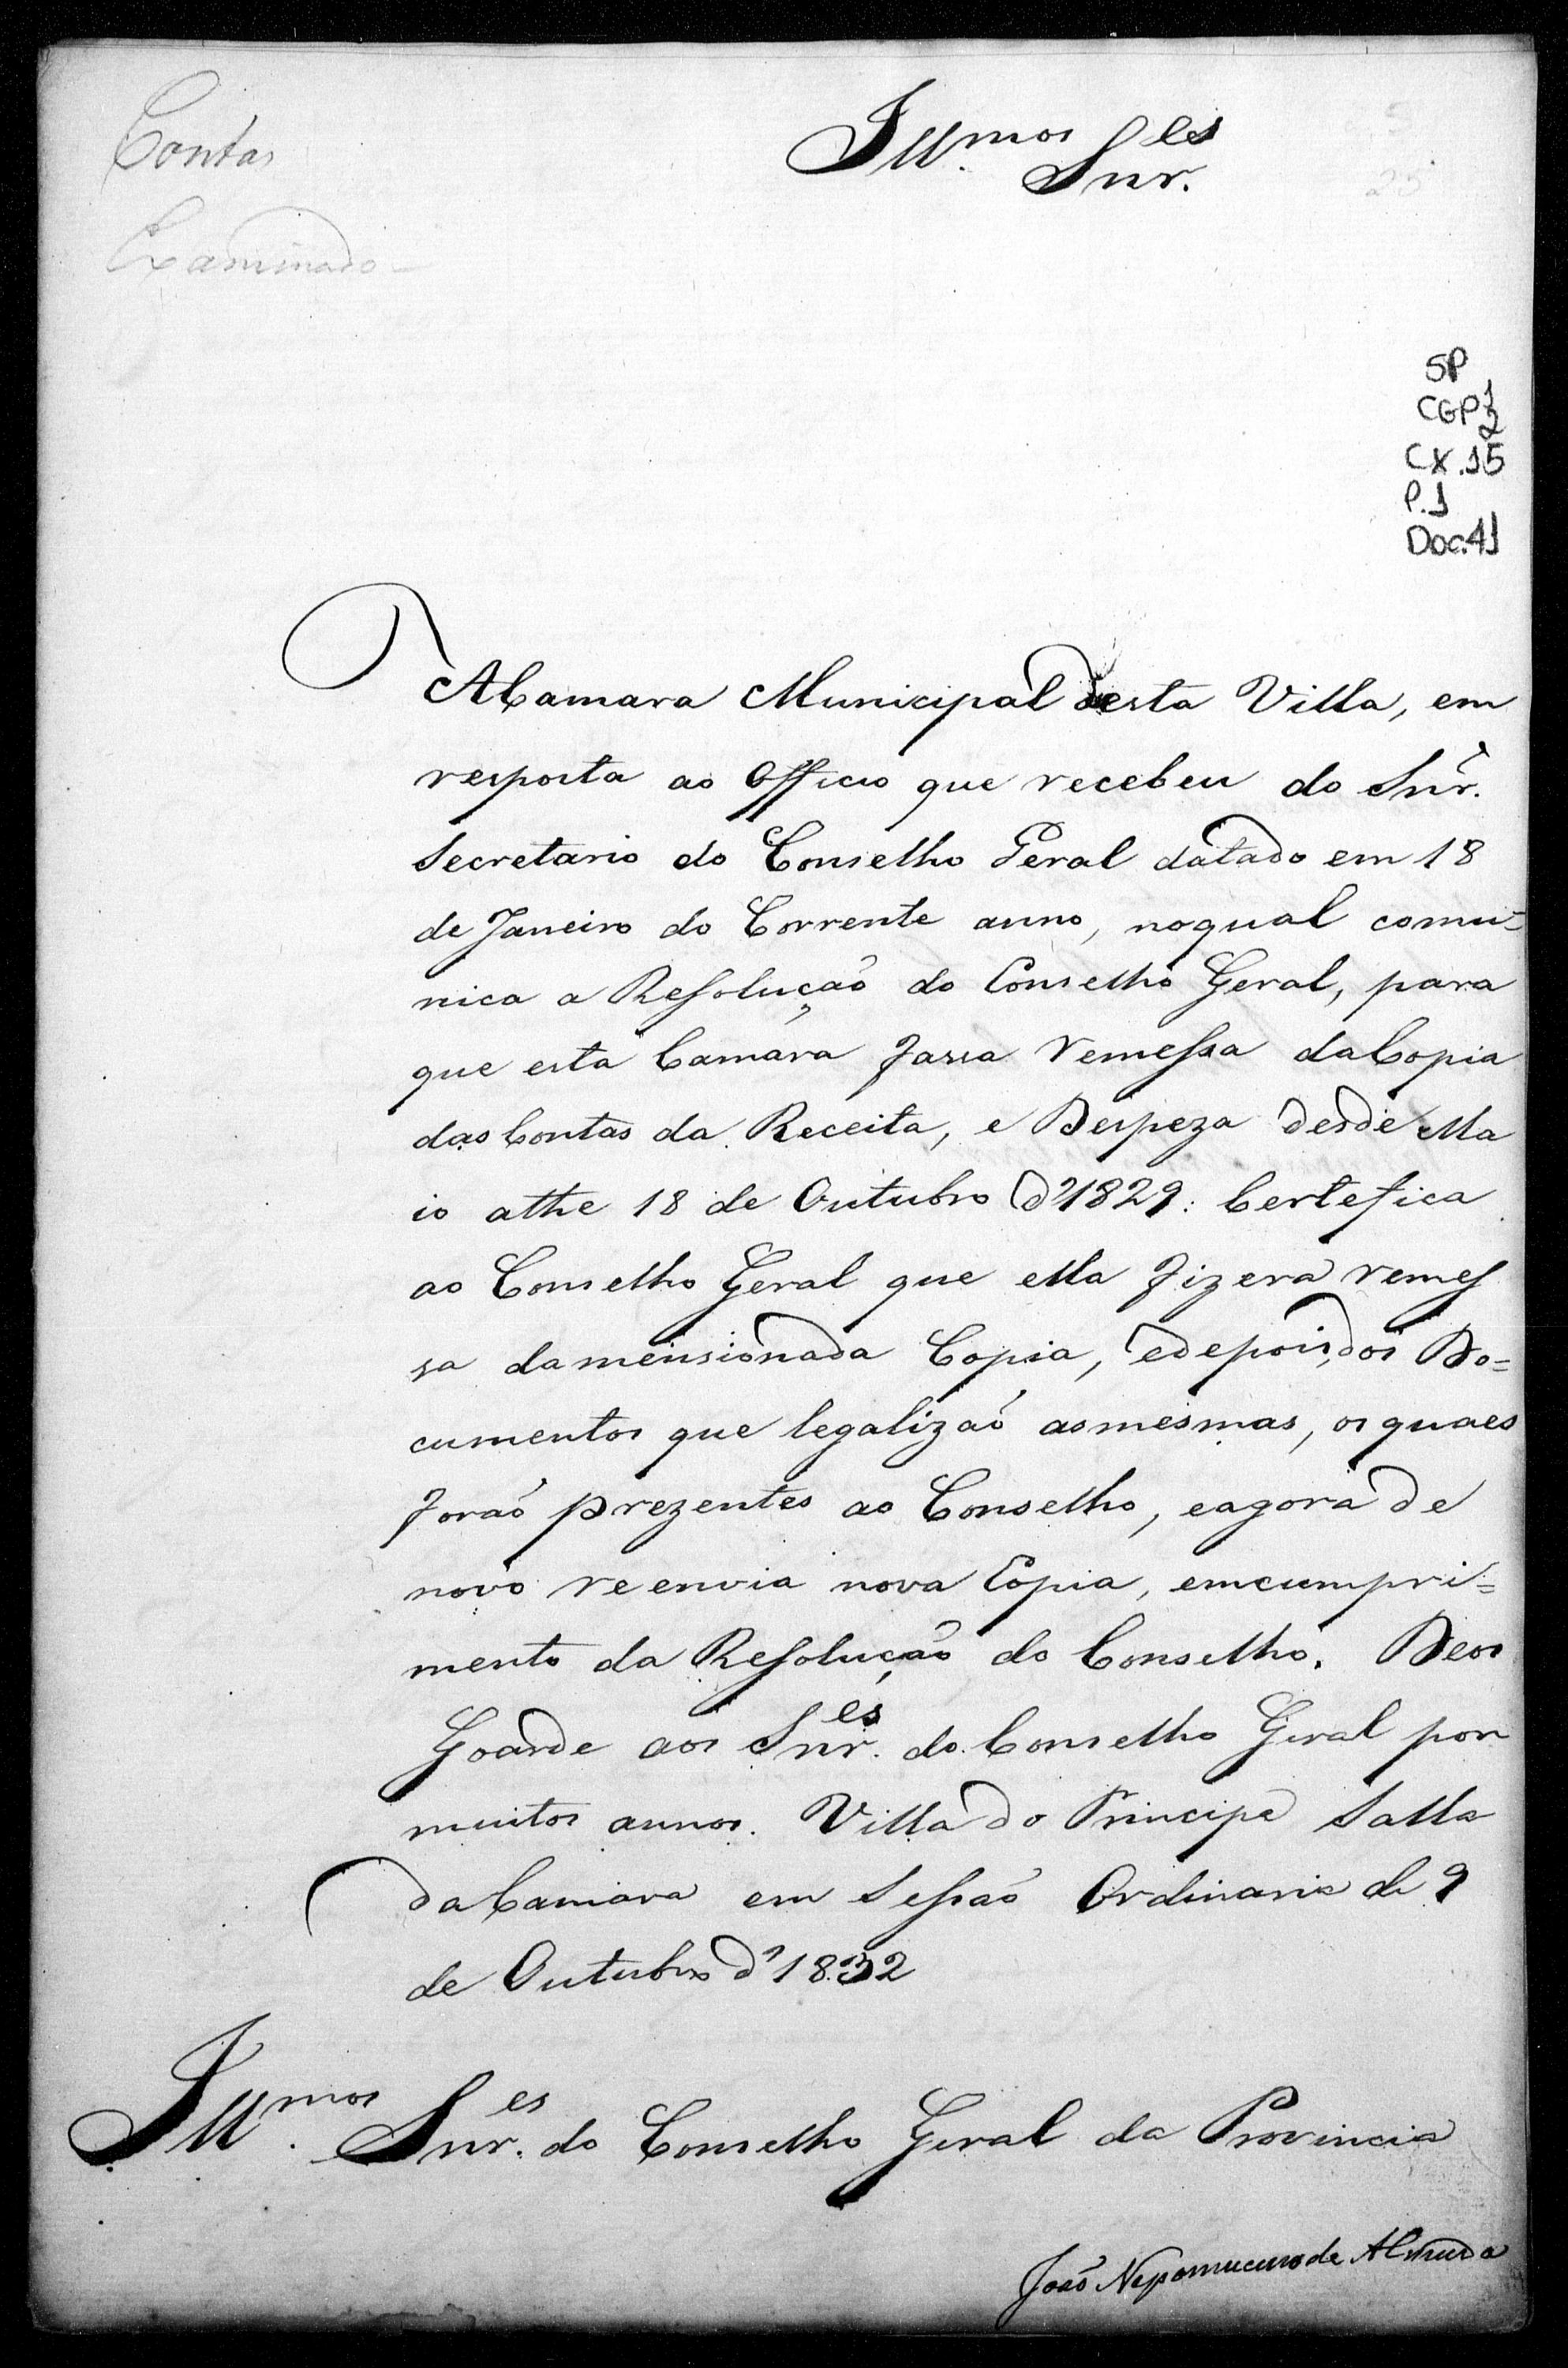 Contas
Examinado
Illmos Snres.
25
SP
CGP 1
2
CX.15
P.1
Doc.41
A Camara Municipal desta Villa, em
resposta ao Officio que recebeu do Snr.
Secretario do Conselho Geral datado em 18
de Janeiro do Corrente anno, noqual comu=
nica a Resolução do Conselho Geral, para
que esta Camara fassa remessa daCopia
das Contas da Receita, e Despeza desde Ma
io athe 18 de Outubro d'1829: Certefica
ao Conselho Geral que ella fizera remes
sa damensionada Copia, edepois, dos Do=
cumentos que legalizaõ asmesmas, os quaes
foraõ prezentes ao Conselho, eagora de
novo reenvia nova Copia, emcumpri=
mento da Resolução do Conselho. Deos
Goarde aos Snres. do Conselho Geral por
muitos annos. Villa do Principe Salla
da Camara em Sessaõ Ordinaria de 9
de Outubro d'1832
Illmos. Snres. do Conselho Geral da Provincia
Joaõ Nepomuceno de Almeida